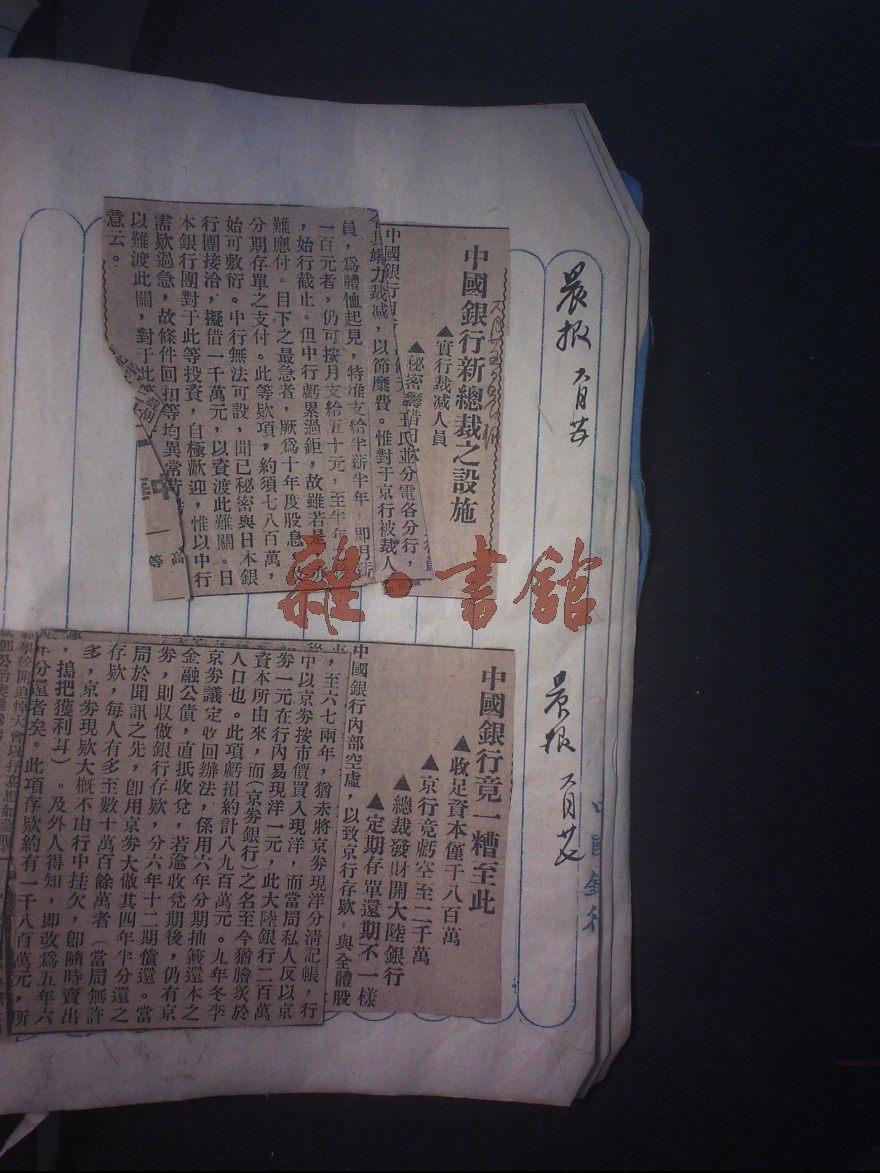 晨报
中國銀行新總裁之設施
▲實行裁減人員
▲秘密籌借日
王氏並分電各分行，
竭力裁减，以節糜費。惟對于京行被裁人
員，爲體恤起見，特准支給半薪半年，即月薪
一百元者，仍可按月支給五十元，至半年
，始行截止。但中行虧累過鉅，故雖若是，亦
難應付。目下之最急者，厥爲十年度股息
分期存單之支付。此等欵項，約須七八百萬，
始可敷衍。中行無法可設，聞已秘密與日本銀
行團接洽，擬借一千萬元，以資渡此難關。日
本銀行團對于此等投資，自極歡迎，惟以中行
需欵過急，故條件回扣等均異常苛
以難渡此關，對於此
意云。
高
等
晨报
中國銀行
中國銀行竟一糟至此
▲收足資本僅千八百萬
▲京行竟虧空至二千萬
▲總裁發財開大陸銀行
▲定期存單還期不一樣
中國銀行內部空虛，以致京行存欵，與全體股
，至六七兩年，猶未將京劵現洋分清記帳，行
中以京劵按市價買入現洋，而當局私人反以京
劵一元在行內易現洋一元，此大陸銀行二百萬
資本所由來，而（京劵銀行）之名至今猶膾炙於
人口也。此項虧損約計八九百萬元。九年冬季
京劵議定收回辦法，係用六年分期抽籤還本之
金融公債，直抵收兌，若逾收兌期後，仍有京
劵，則收做銀行存欵，分六年十二期償還。當
局於聞訊之先，卽用京劵大做其四年半分還之
存欵，每人有多至數十萬百餘萬者（當局無許
多，京劵現欵大概不由行中挂欠，卽隨時賣出
，搗把獲利耳）。及外人得知，即改爲五年六
年分還者矣。此項存欵約有一千八百萬元，所
學校開追悼大會以抒哀思如